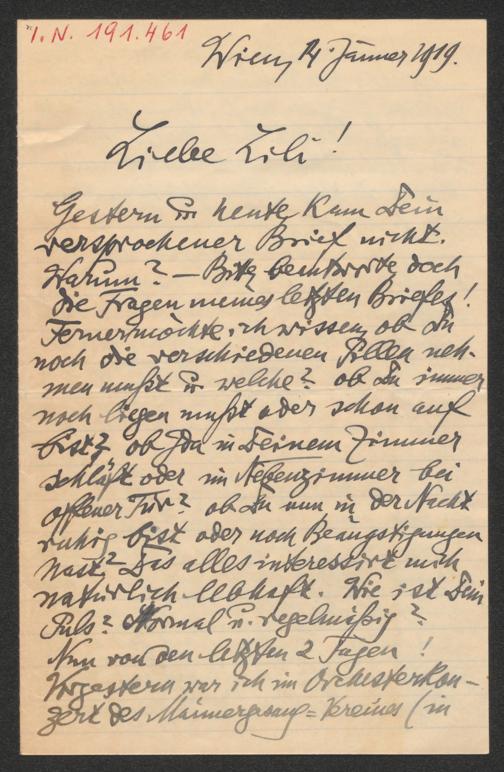 I. N. 191.461
Wien, 14. Jänner 1919.
Liebe Lili!
Gestern u. heute kam Dein
versprochener Brief nicht.
Warum? – Bitte, beantworte doch
die Fragen meines letzten Briefes!
Ferner möchte ich wissen, ob Du
noch die verschiedenen Pillen neh-
men mußt u. welche? ob Du immer
noch liegen mußt oder schon auf
bist? ob Ida in Deinem Zimmer
schläft oder im Nebenzimmer bei
offener Tür? ob Du nun in der Nacht
ruhig bist oder noch Beängstigungen
hast? Das alles interessirt mich
natürlich lebhaft. Wie ist Dein
Puls? Normal u. regelmäßig?
Nun von den letzten 2 Tagen!
Vorgestern war ich im Orchesterkon-
zert des Männergesang-Vereines (in